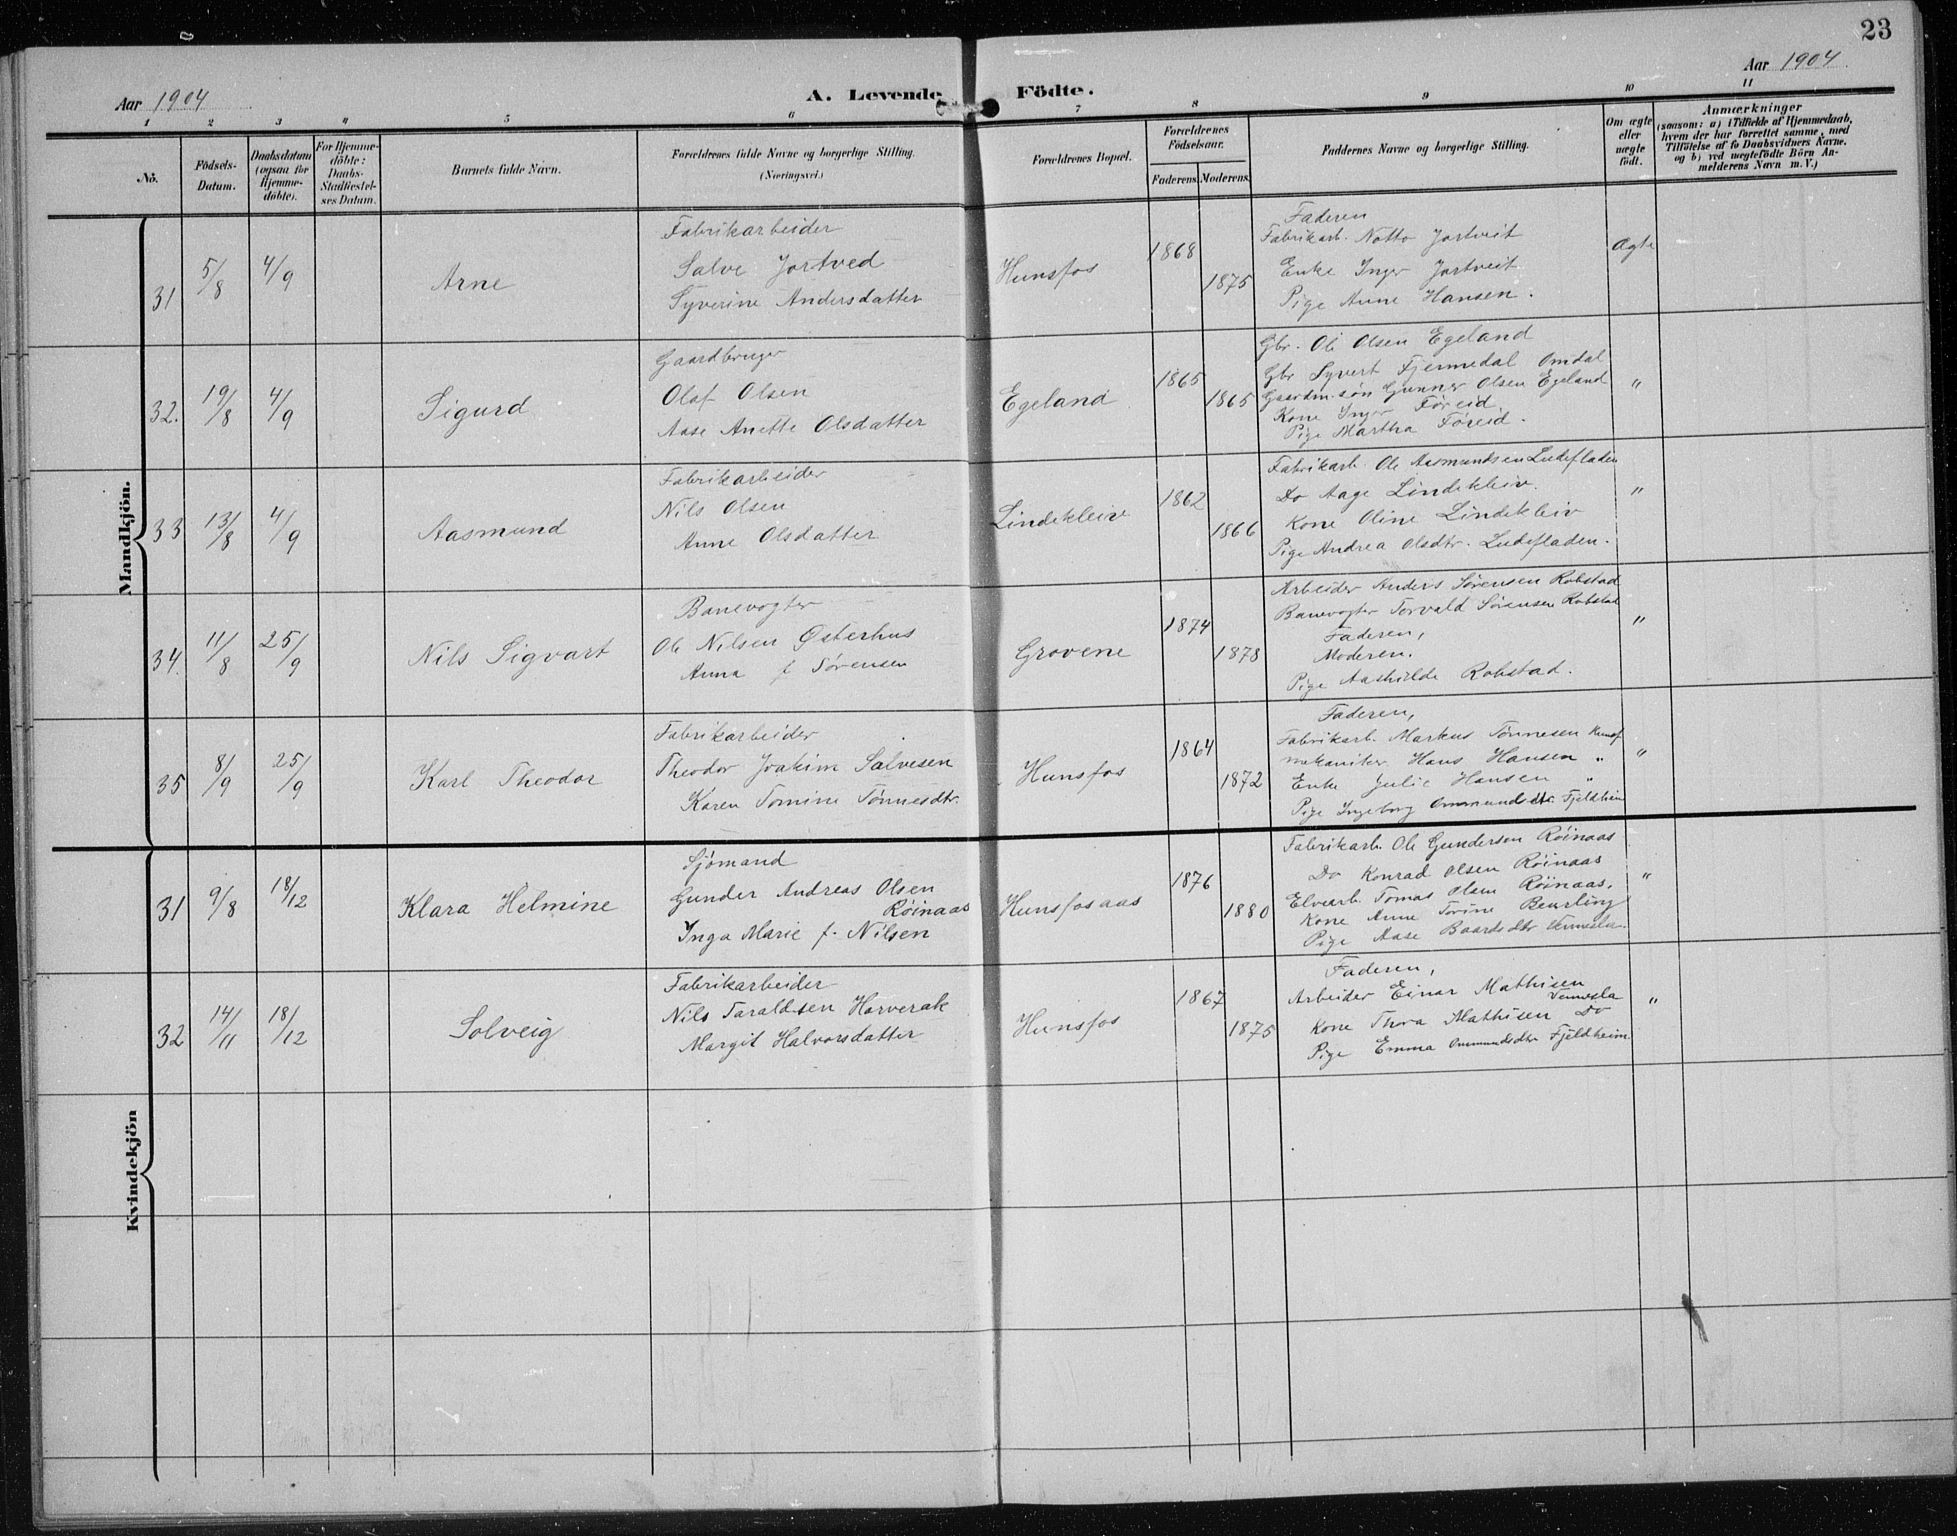 23
Aar 1904
A. Levende
Födte.
Aar 1904.
1 2 3 4 5 6 7 8 9 10 11
No.
Födsels-
Datum.
Daabsdatum
(ogsaa for
Hjemme-
döbte).
For Hjemme-
döbte:
Daabs-
Stadfæstel-
ses Datum.
Barnets fulde Navn.
Forældrenes fulde Navne og borgerlige Stilling.
(Næringsvei.)
Forældrenes Bopæl.
Forældrenes
Födselsaar.
Faderens. Moderens.
Faddernes Navne og borgerlige Stilling.
Om ægte
eller
uægte
födt.
Anmærkninger
(saasom: a) i Tilfælde af Hjemmedaab,
hvem der har forrettet samme, med
Tilföielse af to Daabsvidners Navne,
og b) ved uægtefödte Börn An-
melderens Navn m. V.)
Mandkjön.
31
5/8
4/9
Arne
Fabrikarbeider
Salve Jortved
Syverine Andersdatter
Hunsfos
1868
1875
Faderen
Fabrikarb. Notto Jortveit
Enke Inger Jortveit
Pige Anne Hansen.
Ægte
32.
19/8
4/9
Sigurd
Gaardbruger
Olaf Olsen
Aase Anette Olsdatter
Egeland
1865
1865
Gbr. Ole Olsen Egeland
Gbr Syvert Fjermedal Omdal
Gaardm.søn Gunner Olsen Egeland
Kone Inger Føreid
Pige Martha Føreid.
"
33
13/8
4/9
Aasmund
Fabrikarbeider
Nils Olsen
Anne Olsdatter
Lindekleiv
1862
1866
Fabrikarb. Ole Aasmundsen Ludefladen
Do Aage Lindekleiv.
Kone Oline Lindekleiv
Pige Andrea Olsdtr. Ludefladen.
"
34.
11/8
25/9
Nils Sigvart
Banevogter
Ole Nilsen Østerhus
Anna f Sørensen
Grovene
1874
1878
Arbeider Anders Sørensen Robstad
Banevogter Torvald Sørensen Robstad
Faderen,
Moderen.
Pige Aashilde Robstad.
"
35
8/9
25/9
Karl Theodor
Fabrikarbeider
Theodor Joakim Salvesen
Karen Tomine Tønnesdtr.
Hunsfos
1864
1872
Faderen,
Fabrikarb. Markus Tønnesen Hunsf.
mekaniker Hans Hansen "
Enke Julie Hansen "
Pige Ingeborg Ommundsdtr. Fjeldheim
"
Kvindekjön
31
9/8
18/12
Klara Helmine
Sjømand
Gunder Andreas Olsen
Røinaas
Inga Marie f. Nilsen
Hunsfosaas
1876
1880
Fabrikarb. Ole Gundersen Røinaas
Do Konrad Olsen Røinaas
Elvearb. Tomas Olsen Røinaas.
Kone Anne Torine Beurling
Pige Aase Baardsdtr Vennesla.
"
32
14/11
18/12
Solveig
Fabrikarbeider
Nils Taraldsen Harverak
Margit Halvorsdatter
Hunsfos
1867
1875
Faderen,
Arbeider Einar Mathisen
Vennesla
Kone Thra Mathisen Do
Pige Emma Ommundsdtr Fjeldheim.
"